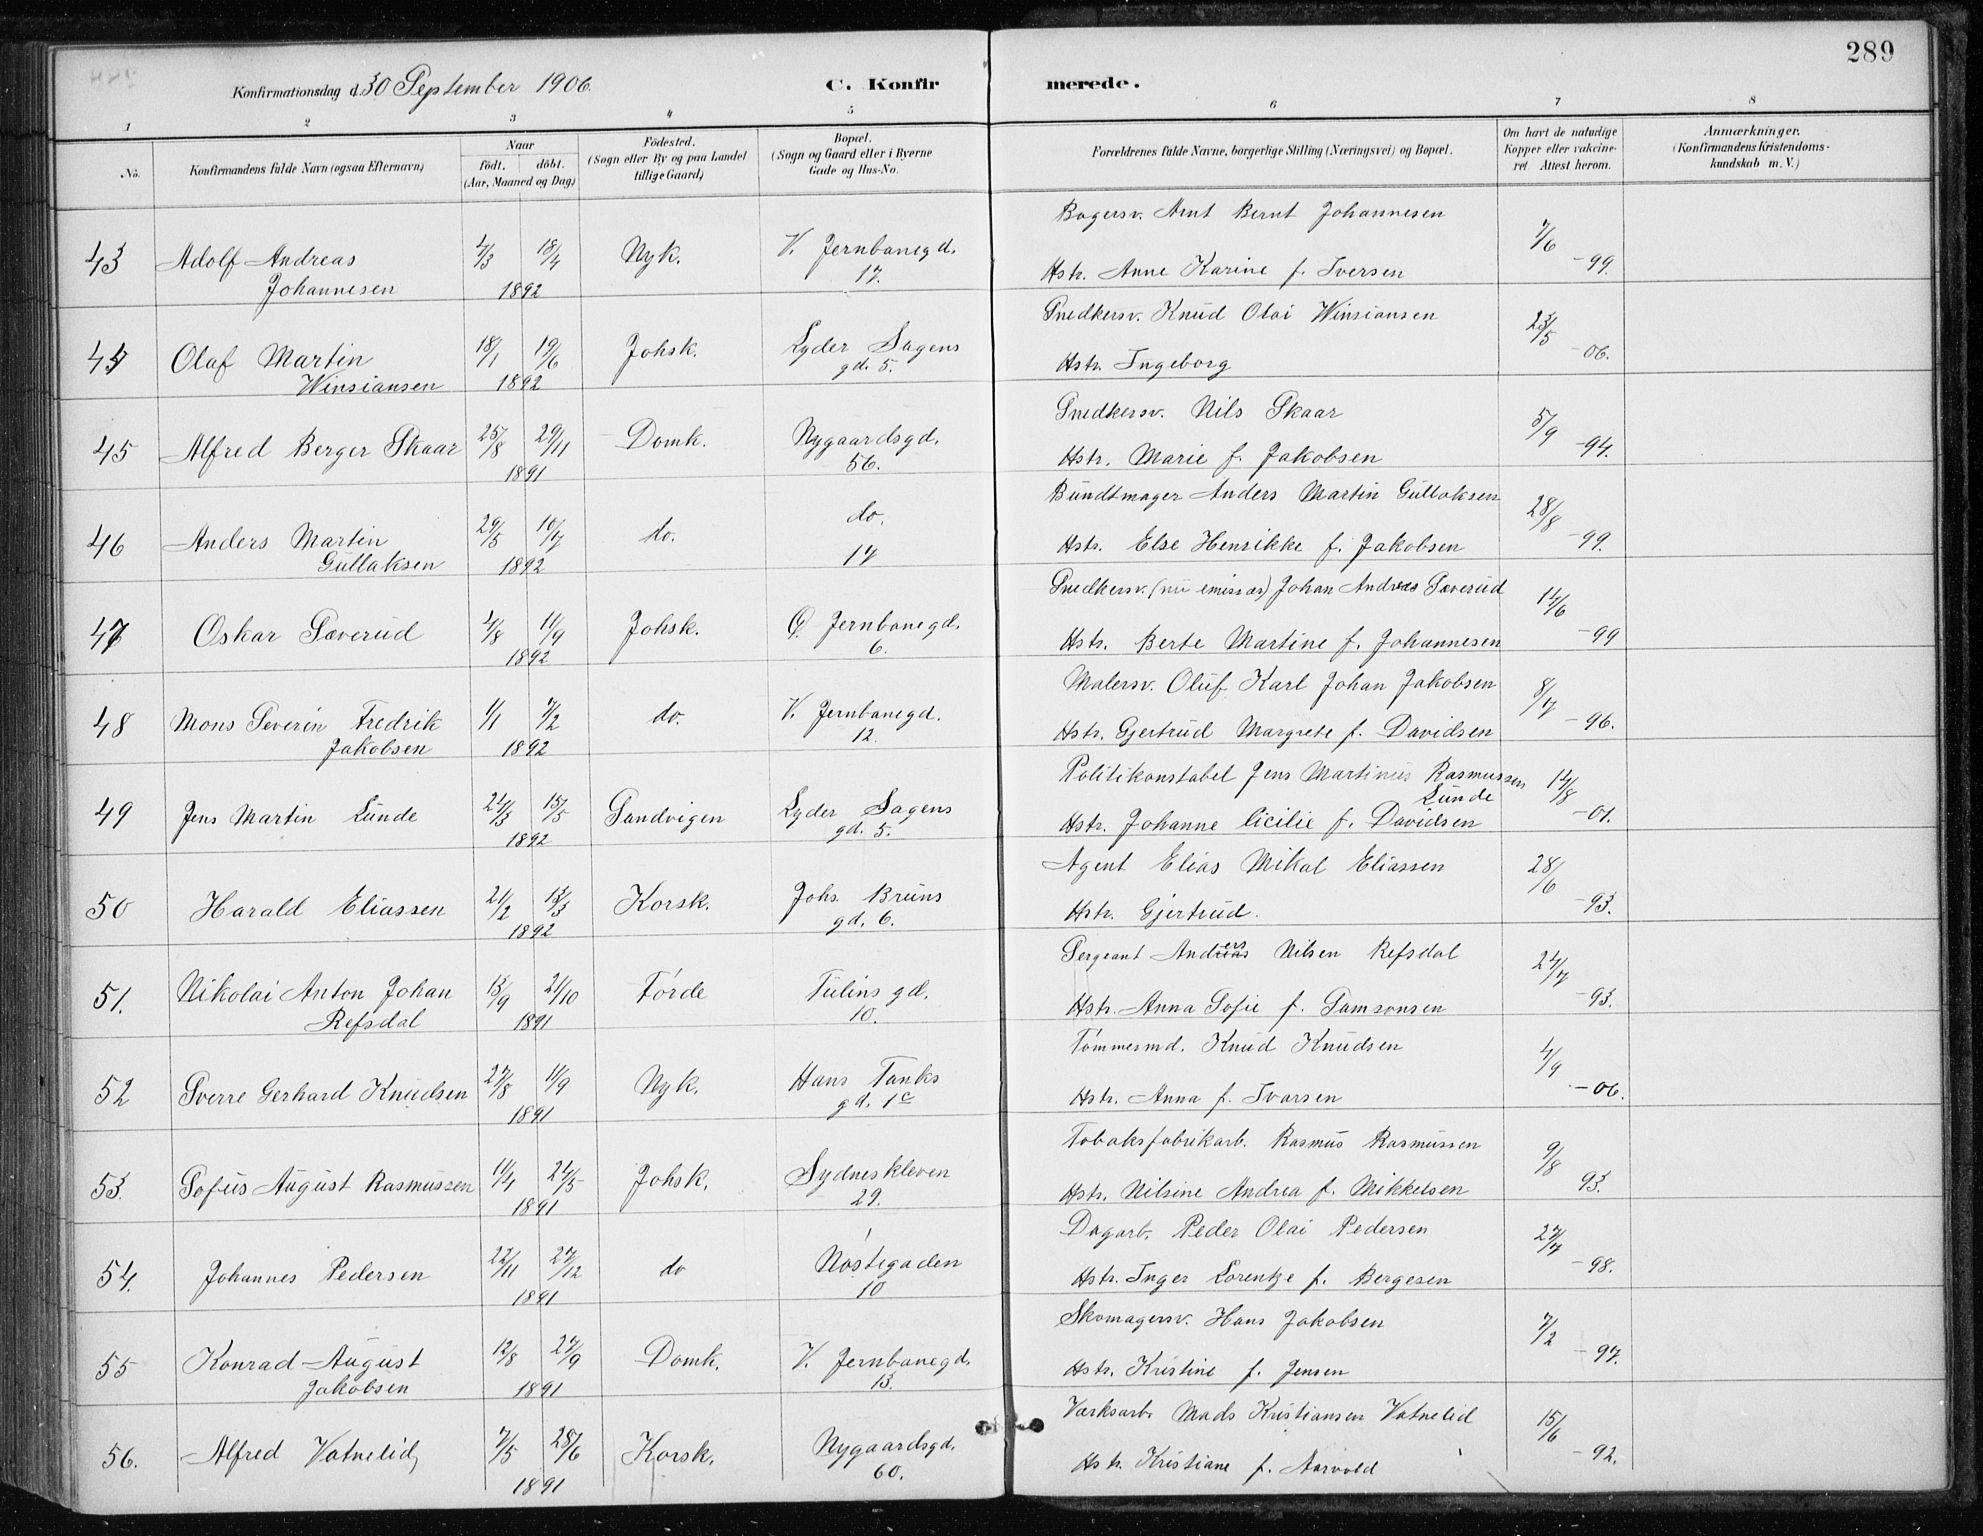 289
Konfirmationsdag d. 30 September 1906.
C. Konfirmerede.
1 2 3 4 5 6 7 8
No.
Konfirmandens fulde Navn (ogsaa Efternavn)
Naar
født. døbt.
(Aar, Maaned og Dag)
Fødested.
(Sogn eller By og paa Landet
tillige Gaard)
Bopæl.
(Sogn og Gaard eller i Byerne
Gade og Hus-No.
Forældrenes fulde Navne, borgerlige Stilling (Næringsvei) og Bopæl.
Om havt de naturlige
Kopper eller vakcine-
ret Attest herom.
Anmærkninger.
(Konfirmandens Kristendoms-
kundskab m. V.)
43 Adolf Andreas Johannesen 4/3 18/4 1892 Nyk. V. Jernbanegd. 17. Bagersv. Arnt Bernt Johannesen 7/6 -99.
Hstr. Anne Karine f. Iversen
44 Olaf Martin Winsiansen 18/1 19/6 1892 Johsk. Lyder Sagens gd. 5. Snedkersv. Knud Olai Winsiansen 23/5 -06.
Hstr. Ingeborg
45 Alfred Berger Skaar 25/8 29/11 1891 Domk. Nygaardsgd. 56. Snedkersv. Nils Skaar 5/9 -94.
Hstr. Marie f. Jakobsen
46 Anders Martin Gullaksen 29/5 10/7 1892 do. do. 17 Bundtmager Anders Martin Gullaksen 28/8 -99.
Hstr. Else Henrikke f. Jakobsen
47 Oskar Sæverud 4/8 11/9 1892 Johsk. Ø. Jernbanegd. 6. Snedkersv. (nu emissær) Johan Andreas Sæverud 14/6 -99
Hstr. Berte Martine f. Johannesen
48 Mons Severin Fredrik Jakobsen 1/1 7/2 1892 do. V. Jernbanegd. 12. Malersv. Oluf Karl Johan Jakobsen 8/7 -96.
Hstr. Gjertrud Margrete f. Davidsen
49 Jens Martin Lunde 24/3 15/5 1892 Sandvigen Lyder Sagens gd. 5. Politikonstabel Jens Martinus Rasmussen Lunde 14/8 -01.
Hstr. Johanne Cicilie f. Davidsen
50 Harald Eliassen 21/2 13/3 1892 Korsk. Johs. Bruns gd. 6. Agent Elias Mikal Eliassen 28/6 -93.
Hstr. Gjertrud.
51. Nikolai Anton Johan Refsdal 13/9 21/10 1891 Førde Tulins gd. 10. Sergeant Anders Nilsen Refsdal 24/7 -93.
Hstr. Anna Sofie f. Samsonsen
52 Sverre Gerhard Knudsen 27/8 11/9 1891 Nyk. Hans Tanks gd. 1c Tømmermd. Knud Knudsen 4/9 -06.
Hstr. Anna f. Ivarsen
53. Sofus August Rasmussen 11/4 24/5 1891 Johsk. Sydneskleven 29. Tobaksfabrikarb. Rasmus Rasmussen 9/8 93.
Hstr. Nilsine Andrea f. Mikkelsen
54. Johannes Pedersen 22/11 27/12 1891 do Nøstegaden 10 Dagarb. Peder Olai Pedersen 27/7 -98.
Hstr. Inger Lorentze f. Bergesen
55 Konrad August Jakobsen 12/8 27/9 1891 Domk. V. Jernbanegd. 13. Skomagersv. Hans Jakobsen 7/2 -97.
Hstr. Kristine f. Jensen
56. Alfred Vatnelid 7/5 28/6 1891 Korsk. Nygaardsgd. 60. Værksarb. Mads Kristiansen Vatnelid 15/6 -92.
Hstr. Kristiane f. Aarvold